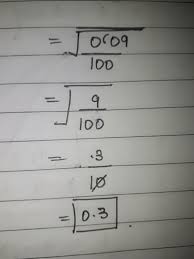 = √0.09/100
= √9/100
= .3/10
= 0.3